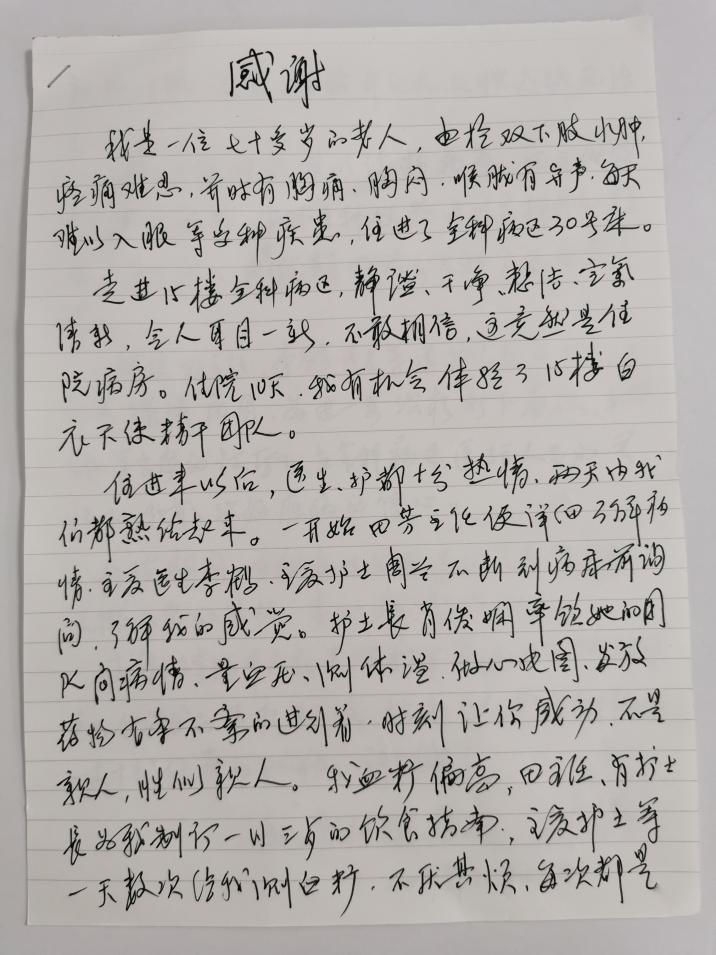 感谢
我是一位七十多岁的老人，由于双下肢水肿，
疼痛难忍，并时有胸痛、胸闷、喉咙有异声、每天
难以入眠等多种疾患，住进了全科病区30号床。
走进15楼全科病区，静谧、干净、整洁、空气
清新，令人耳目一新，不敢相信，这竟然是住
院病房。住院10天，我有机会体验了15楼白
衣天使精干团队。
住进来以后，医生、护都十分热情、两天内我
们都熟络起来。一开始田芳主任便详细了解病
情、主庋医生李鹤、主庋护士周兰不断到病床前询
问，了解我的感觉。护士长肖俊娴率领她的团
队问病情、量血压、测体温、做心电图、发放
药物有条不紊的进行着，时刻让你感动，不是
亲人，胜似亲人。我血糖偏高，田主任、肖护士
长为我制订一日三多的饮食指南，主庋护士等
一天数次给我测血糖，不厌其烦，每次都是